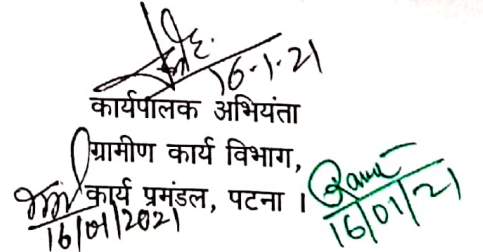 16.1.21
कार्यपालक अभियंता
ग्रामीण कार्य विभाग,
कार्य प्रमंडल, पटना ।
16/01/2021
16/01/21